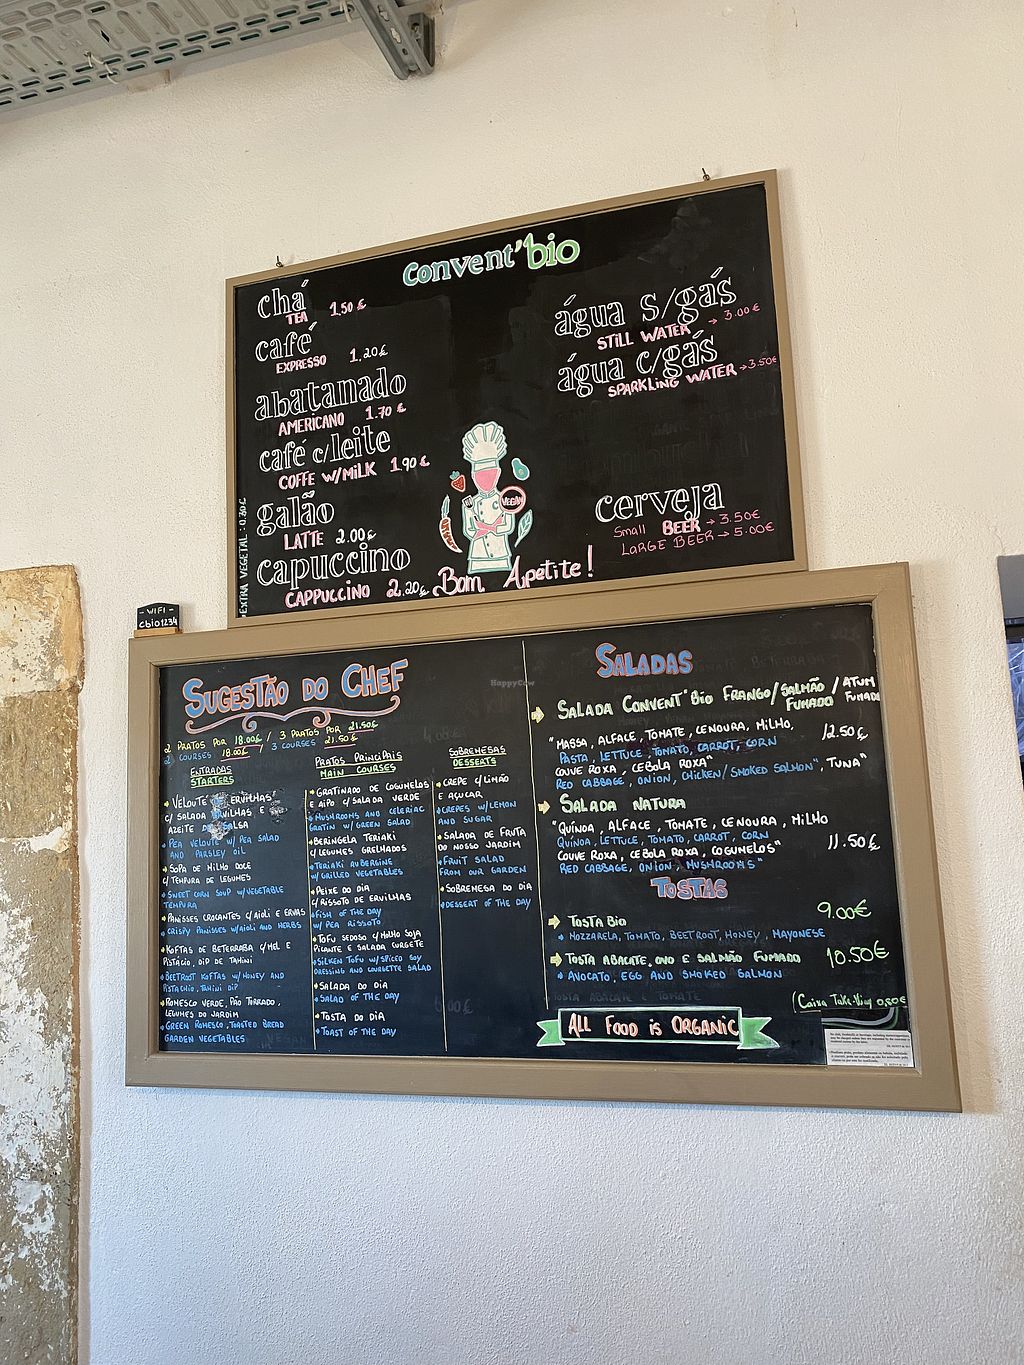 convent'bio
chá
TEA 1.50 €
café
EXPRESSO 1.20€
abatanado
AMERICANO 1.70 €
café c/leite
COFFE W/MILK 1.90 €
galão
LATTE 2.00€
capuccino
CAPPUCCINO 2.20€
*EXTRA VEGETAL: 0.30€
água s/gás
STILL WATER → 3.00€
água c/gás
SPARKLING WATER → 3.50€
VEGAN
cerveja
Small BEER → 3.50€
LARGE BEER → 5.00€
Bom Apetite!
- WIFI -
cbio1234
SUGESTÃO DO CHEF
2 PRATOS POR 18.00€ / 3 PRATOS POR 21.50€
2 COURSES 18.00€ / 3 COURSES 21.50€
ENTRADAS
STARTERS
VELOUTÉ ERVILHAS
C/ SALADA ERVILHAS E
AZEITE SALSA
PEA VELOUTE W/ PEA SALAD
AND PARSLEY OIL
SOPA DE MILHO DOCE
C/ TEMPURA DE LEGUMES
SWEET CORN SOUP W/VEGETABLE
TEMPURA
PANISSES CROCANTES C/AIOLI E ERVAS
CRISPY PANISSES W/AIOLI AND HERBS
KOFTAS DE BETERRABA C/MEL E
PISTÁCIO, DIP DE TAHINI
BEETROOT KOFTAS W/ HONEY AND
PISTACHIO, TAHINI DIP
ROMESCO VERDE, PÃO TORRADO,
LEGUMES DO JARDIM
GREEN ROMESCO, TOASTED BREAD
GARDEN VEGETABLES
PRATOS PRINCIPAIS
MAIN COURSES
GRATINADO DE COGUMELOS
E AIPO C/ SALADA VERDE
MUSHROOMS AND CELERIAC
GRATIN W/ GREEN SALAD
BERINGELA TERIAKI
C/ LEGUMES GRELHADOS
TERIAKI AUBERGINE
W/ GRILLED VEGETABLES
PEIXE DO DIA
C/ RISSOTO DE ERVILHAS
FISH OF THE DAY
W/ PEA RISSOTO
TOFU SEDOSO C/ MOLHO SOJA
PICANTE E SALADA CURGETE
SILKEN TOFU W/ SPICED SOY
DRESSING AND COURGETTE SALAD
SALADA DO DIA
SALAD OF THE DAY
TOSTA DO DIA
TOAST OF THE DAY
SOBREMESAS
DESSERTS
CREPE C/ LIMÃO
E AÇUCAR
CREPES W/ LEMON
AND SUGAR
SALADA DE FRUTA
DO NOSSO JARDIM
FRUIT SALAD
FROM OUR GARDEN
SOBREMESA DO DIA
DESSERT OF THE DAY
SALADAS
SALADA CONVENT'BIO FRANGO/SALMÃO FUMADO/ATUM FUMADO
"MASSA, ALFACE, TOMATE, CENOURA, MILHO, 12.50€
PASTA, LETTUCE, TOMATO, CARROT, CORN
COUVE ROXA, CEBOLA ROXA"
RED CABBAGE, ONION, CHICKEN/ SMOKED SALMON", TUNA"
SALADA NATURA
"QUINOA, ALFACE, TOMATE, CENOURA, MILHO
QUINOA, LETTUCE, TOMATO, CARROT, CORN 11.50€
COUVE ROXA, CEBOLA ROXA, COGUMELOS"
RED CABBAGE, ONION, MUSHROOMS"
TOSTAS
TOSTA BIO 9.00€
MOZZARELA, TOMATO, BEETROOT, HONEY, MAYONESE
TOSTA ABACATE, OVO E SALMÃO FUMADO 10.50€
AVOCATO, EGG AND SMOKED SALMON
(Caixa Take-Away 0,50€
ALL FOOD IS ORGANIC
HappyCow